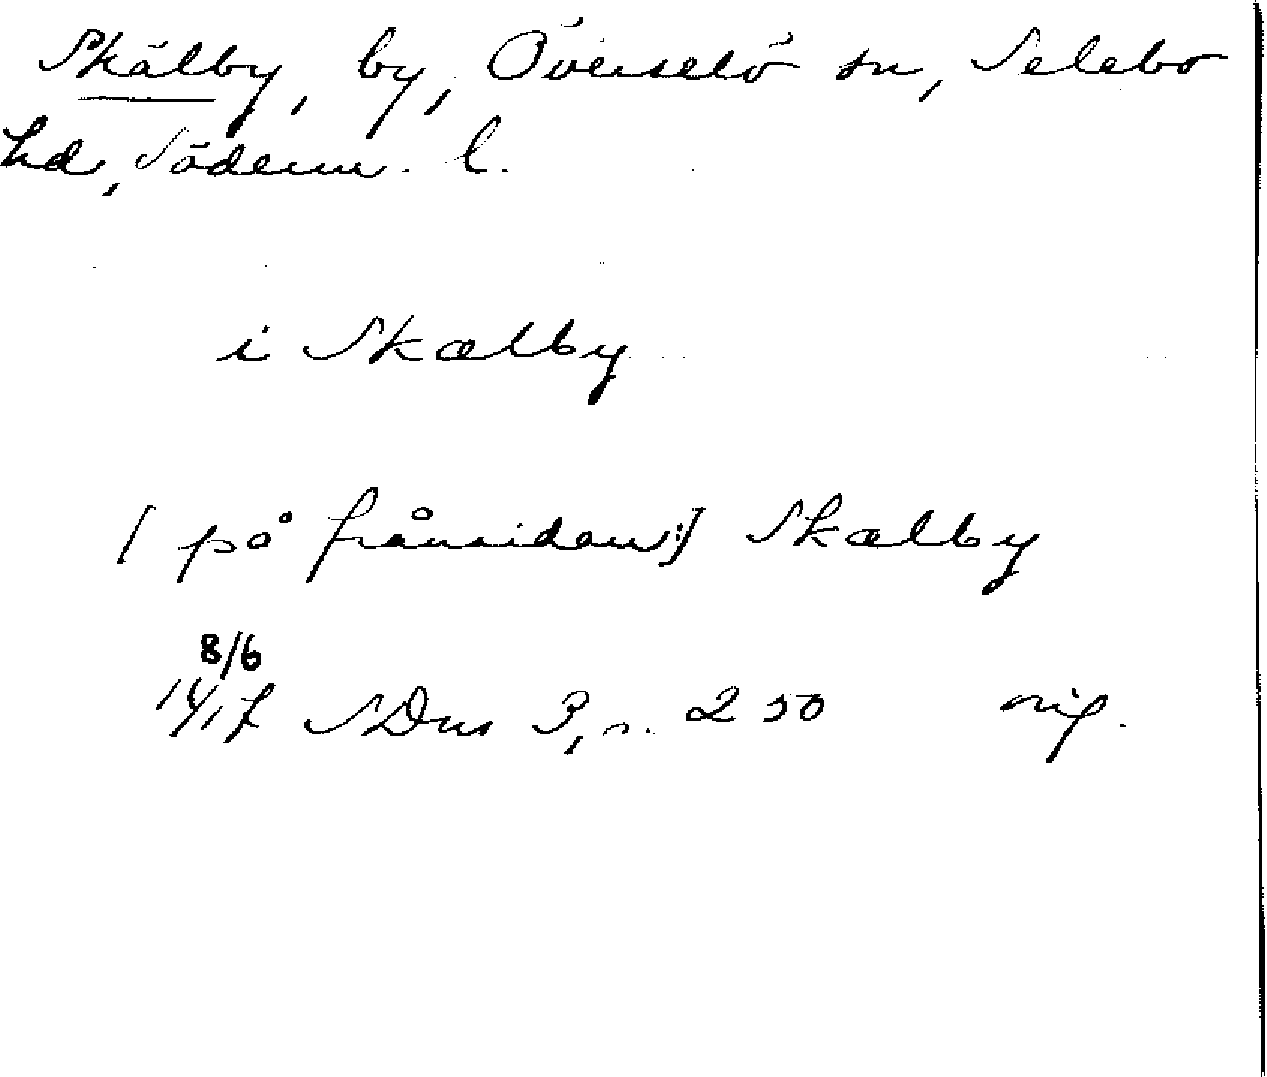 Skälby, by, Överselö sn, Selebo
hd, Söderm. l.
i Skælby
[på frånsidan:] Skælby
8/6
1417 SDns 3, s. 250 orig.